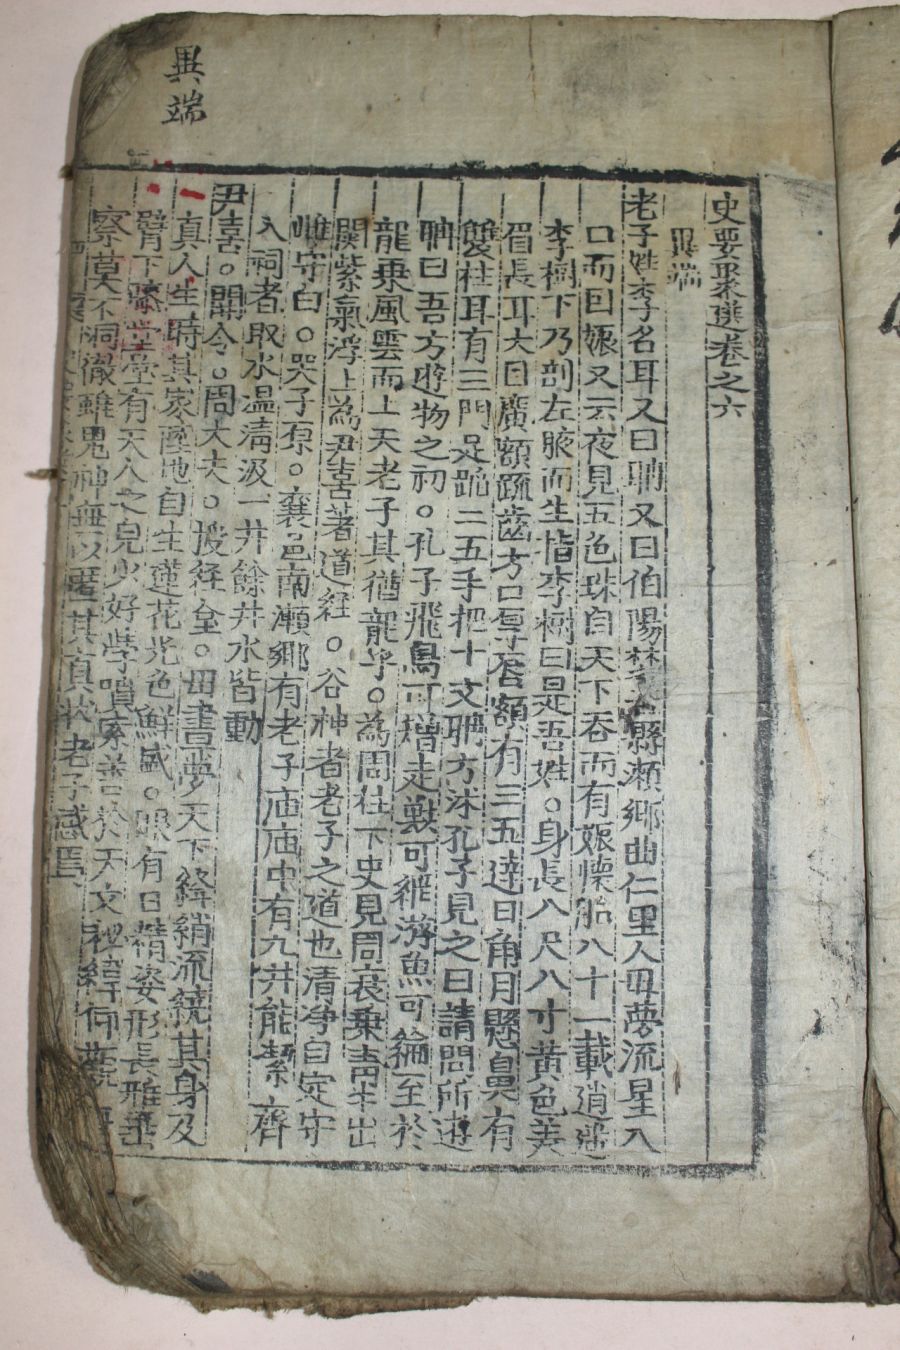 異端
史要聚選卷之六
異端
老子姓李名耳又曰聃又曰伯陽楚苦縣瀨鄉曲仁里人母夢流星入
口而回娠又云夜見五色珠自天下吞而有娠懷胎八十一載逍遙
李樹下乃剖左腋而生指李樹曰是吾姓○身長八尺八寸黃色美
眉長耳大目廣額疏齒方口厚唇額有三五達日角月懸鼻有
雙柱耳有三門足蹈二五手把十文聃方沐孔子見之曰請問所遊
聃曰吾方遊物之初○孔子飛鳥可矰走獸可維游魚可綸至於
龍乘風雲而上天老子其猶龍乎○為周柱下史見周衰乘青牛出
關紫氣浮上為尹喜著道經○谷神者老子之道也清淨自定守
雌守白○哭子原○襄邑南瀨鄉有老子庙庙中有九井能絜齊
入祠者取水温清汲一井餘井水皆動
尹喜○關令○周大夫○授經臺○母晝夢天下絳綃流繞其身及
真人生時其家陸地自生蓮花光色鮮盛○眼有日精姿形長雅垂
臂下膝堂堂有天人之皃少好學墳索善於天文秘緯仰
察莫不洞徹雖鬼神無以匿其真狀老子感焉